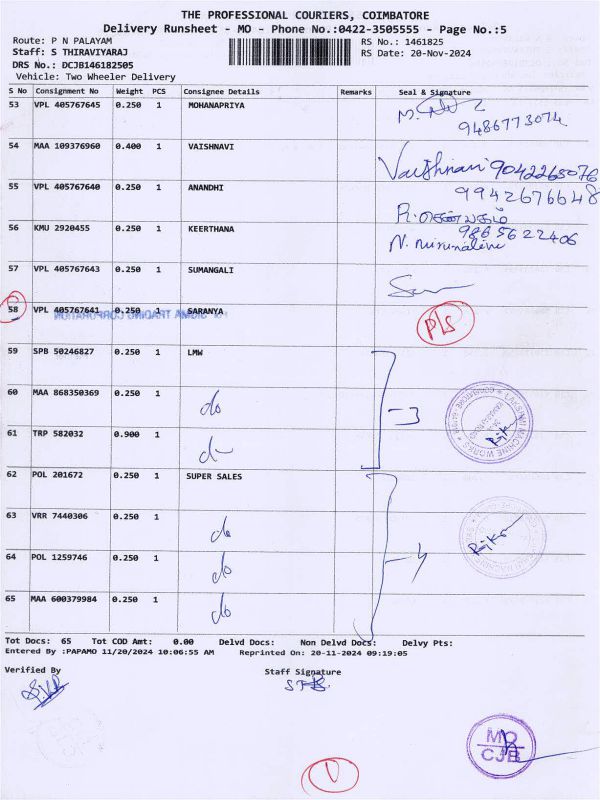 THE PROFESSIONAL COURIERS, COIMBATORE
Delivery Runsheet - MO - Phone No.:0422-3505555 - Page No.:5
Route: P N PALAYAM RS No.: 1461825
Staff: S THIRAVIYARAJ RS Date: 20-Nov-2024
DRS No.: DCJB146182505
Vehicle: Two Wheeler Delivery
S No Consignment No Weight PCS Consignee Details Remarks Seal & Signature
53 VPL 405767645 0.250 1 MOHANAPRIYA
9486773074
54 MAA 109376960 0.400 1 VAISHNAVI Vaishnavi 9042265076
55 VPL 405767640 0.250 1 ANANDHI 9942676648
56 KMU 2920455 0.250 1 KEERTHANA 9865622406
57 VPL 405767643 0.250 1 SUMANGALI
58 VPL 405767641 0.250 1 SARANYA PLS
59 SPB 50246827 0.250 1 LMW
60 MAA 868350369 0.250 1 do 3
61 TRP 582032 0.900 1
62 POL 201672 0.250 1 SUPER SALES
63 VRR 7440306 0.250 1 do
64 POL 1259746 0.250 1 do 4
65 MAA 600379984 0.250 1 do
LAKSHMI MACHINE WORKS
Tot Docs: 65 Tot COD Amt: 0.00 Delvd Docs: Non Delvd Docs: Delvy Pts:
Entered By :PAPAMO 11/20/2024 10:06:55 AM Reprinted On: 20-11-2024 09:19:05
Verified By Staff Signature
MO
CJB